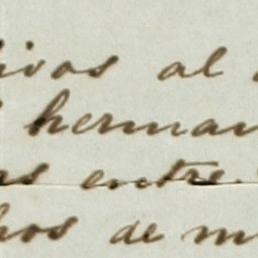 ivos al
herman
as entre
hos de m